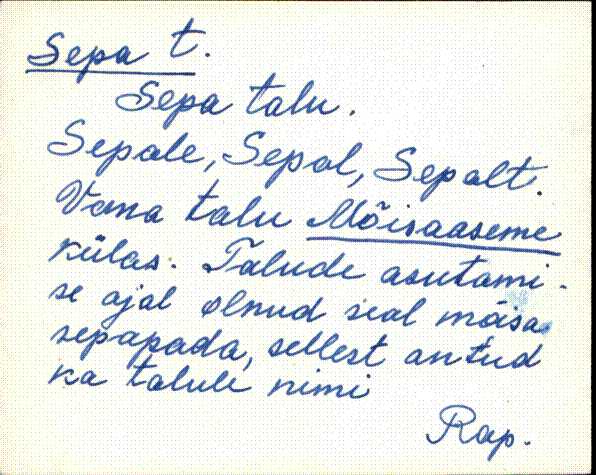 Sepa t.
Sepa talu.
Sepale, Sepal, Sepalt.
Vana talu Mõisaaseme
külas. Talude asutami-
se ajal olnud seal mõisa
sepapada, sellest antud
ka talule nimi
Rap.